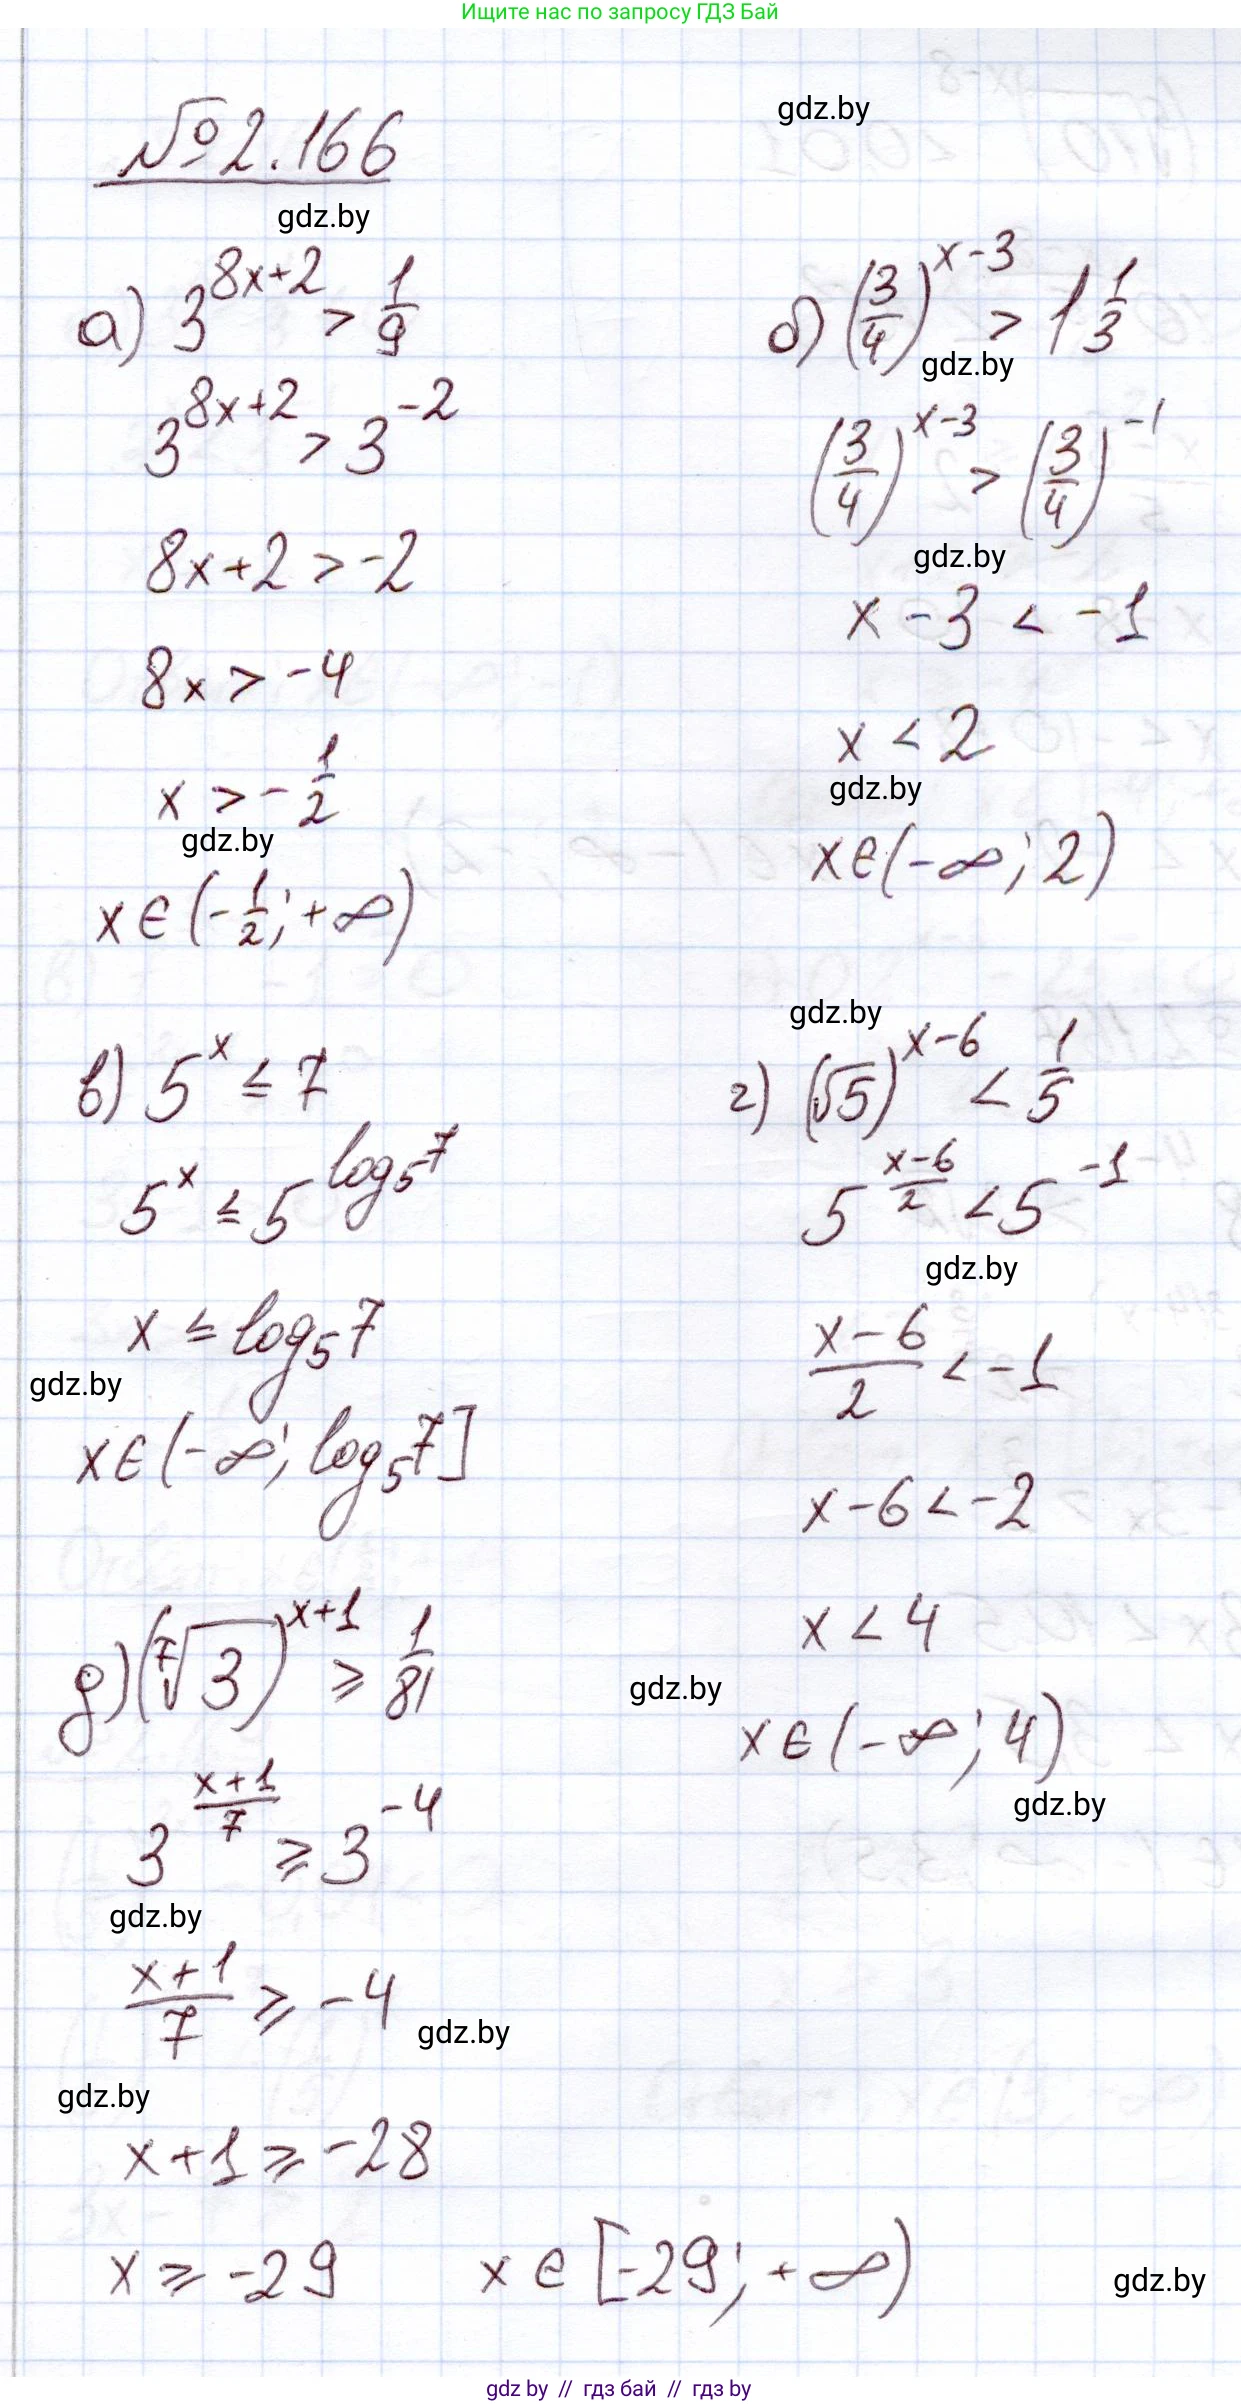 Ищите нас по запросу ГДЗ Бай
№2.166
gdz.by
gdz.by
а) 3^(8x+2) > 1/9
3^(8x+2) > 3^(-2)
8x+2 > -2
8x > -4
x > -1/2
gdz.by
x∈(-1/2; +∞)
б) (3/4)^(x-3) > 1 1/3
gdz.by
(3/4)^(x-3) > (3/4)^(-1)
gdz.by
x-3 < -1
x < 2
gdz.by
x∈(-∞; 2)
в) 5^x ≤ 7
5^x ≤ 5^(log₅7)
x ≤ log₅7
gdz.by
x∈(-∞; log₅7]
gdz.by
г) (√5)^(x-6) < 1/5
5^((x-6)/2) < 5^(-1)
gdz.by
(x-6)/2 < -1
x-6 < -2
x < 4
gdz.by
x∈(-∞; 4)
gdz.by
д) (⁷√3)^(x+1) ≥ 1/81
3^((x+1)/7) ≥ 3^(-4)
gdz.by
(x+1)/7 ≥ -4
gdz.by
gdz.by
x+1 ≥ -28
x ≥ -29 x∈[-29; +∞)
gdz.by
gdz by // гдз бай // гдз by